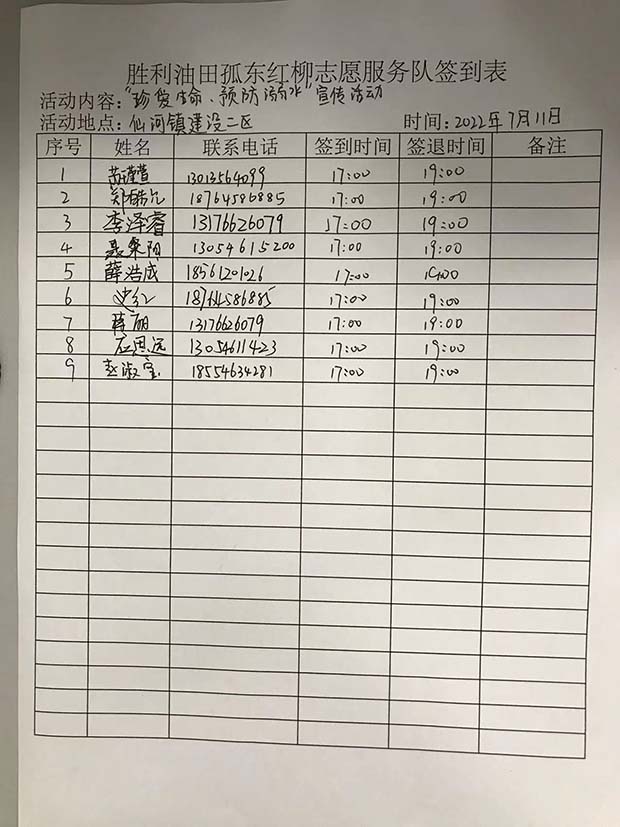 胜利油田孤东红柳志愿服务队签到表
活动内容:"珍爱生命、预防溺水"宣传活动
活动地点:仙河镇建设二区 时间:2022年7月11日
序号 姓名 联系电话 签到时间 签退时间 备注
1 13013564099 17:00 19:00
2 郑皓元 18764586885 17:00 19:00
3 李泽睿 13176626079 17:00 19:00
4 13054615200 17:00 19:00
5 薛浩成 18561201026 17:00 19:00
6 史红 18764586885 17:00 19:00
7 蒋丽 13176626079 17:00 19:00
8 石思远 13054611423 17:00 19:00
9 赵淑宝 18554634281 17:00 19:00